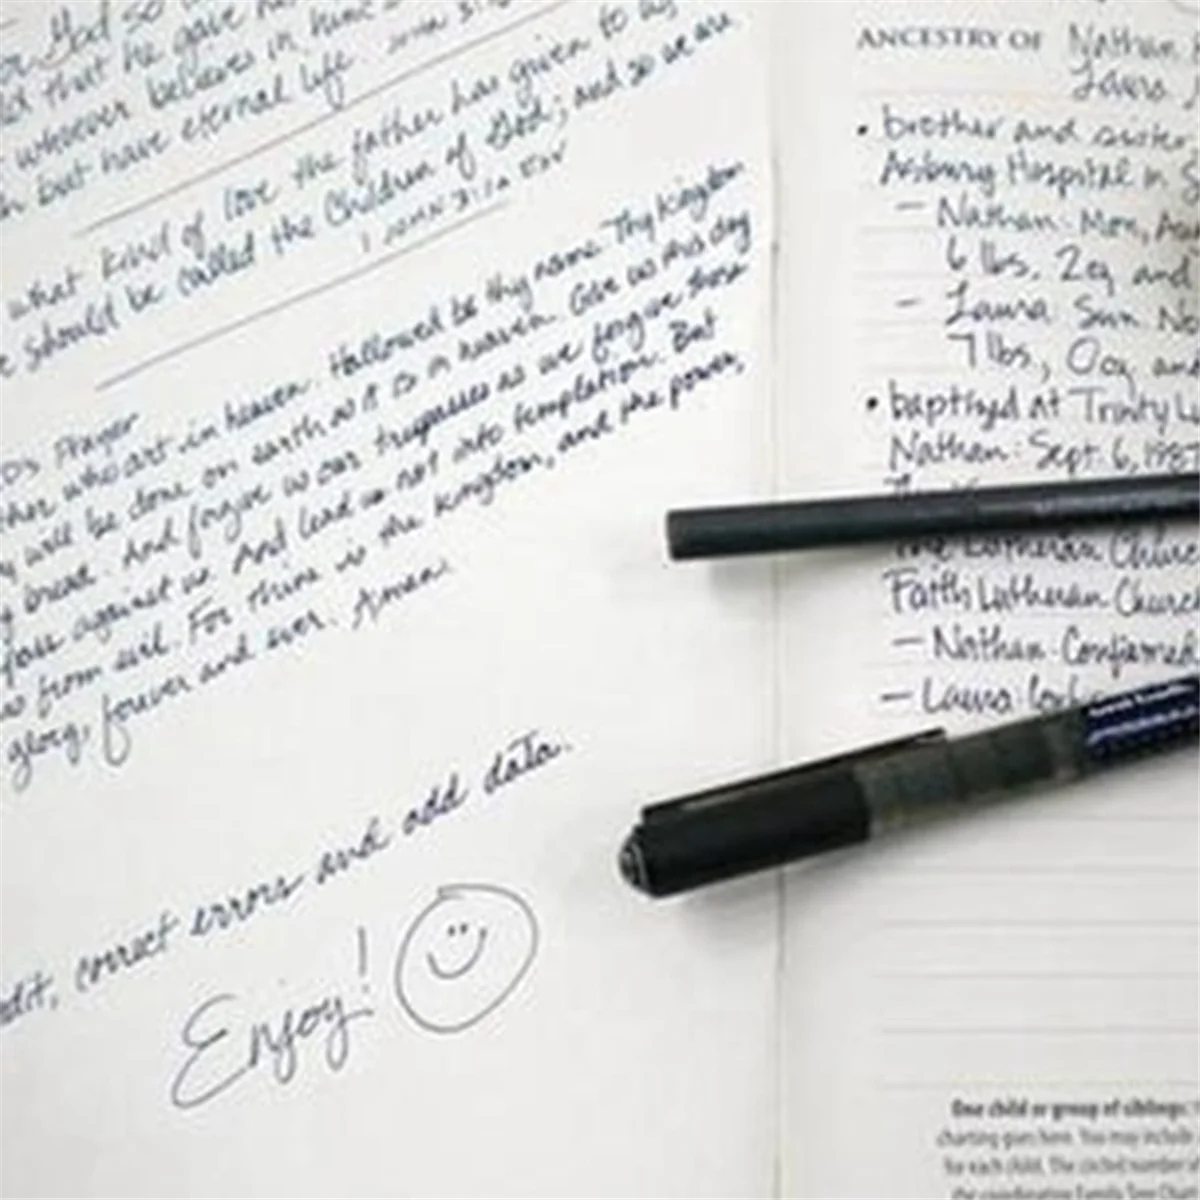 God so
that he gave
whoever believes in
but have eternal life.
what kind of love the father has given to us
should be called the Children of God; and so we are
1 JOHN 3:1a ESV
Prayer
who art in heaven. Hallowed be thy name. Thy Kingdom
will be done on earth as it is in heaven. Give us this day
bread. And forgive us our trespasses as we forgive those
against us. And lead us not into temptation. But
us from evil. For thine is the kingdom, and the power,
glory, forever and ever. Amen.
edit, correct errors and add data.
Enjoy!
ANCESTRY OF Nathan
Laura
• brother and sister
Asbury Hospital in
– Nathan: Mon,
6 lbs. 2oz and
– Laura: Sun. No
7 lbs, 0oz and
• baptized at Trinity
Nathan: Sept. 6, 1987
The Lutheran Church
Faith Lutheran Church
– Nathan: Confirmed
– Laura:
One child or group of siblings:
charting goes here. You may include
for each child. The circled number of
the coordinating Family Tree Chart